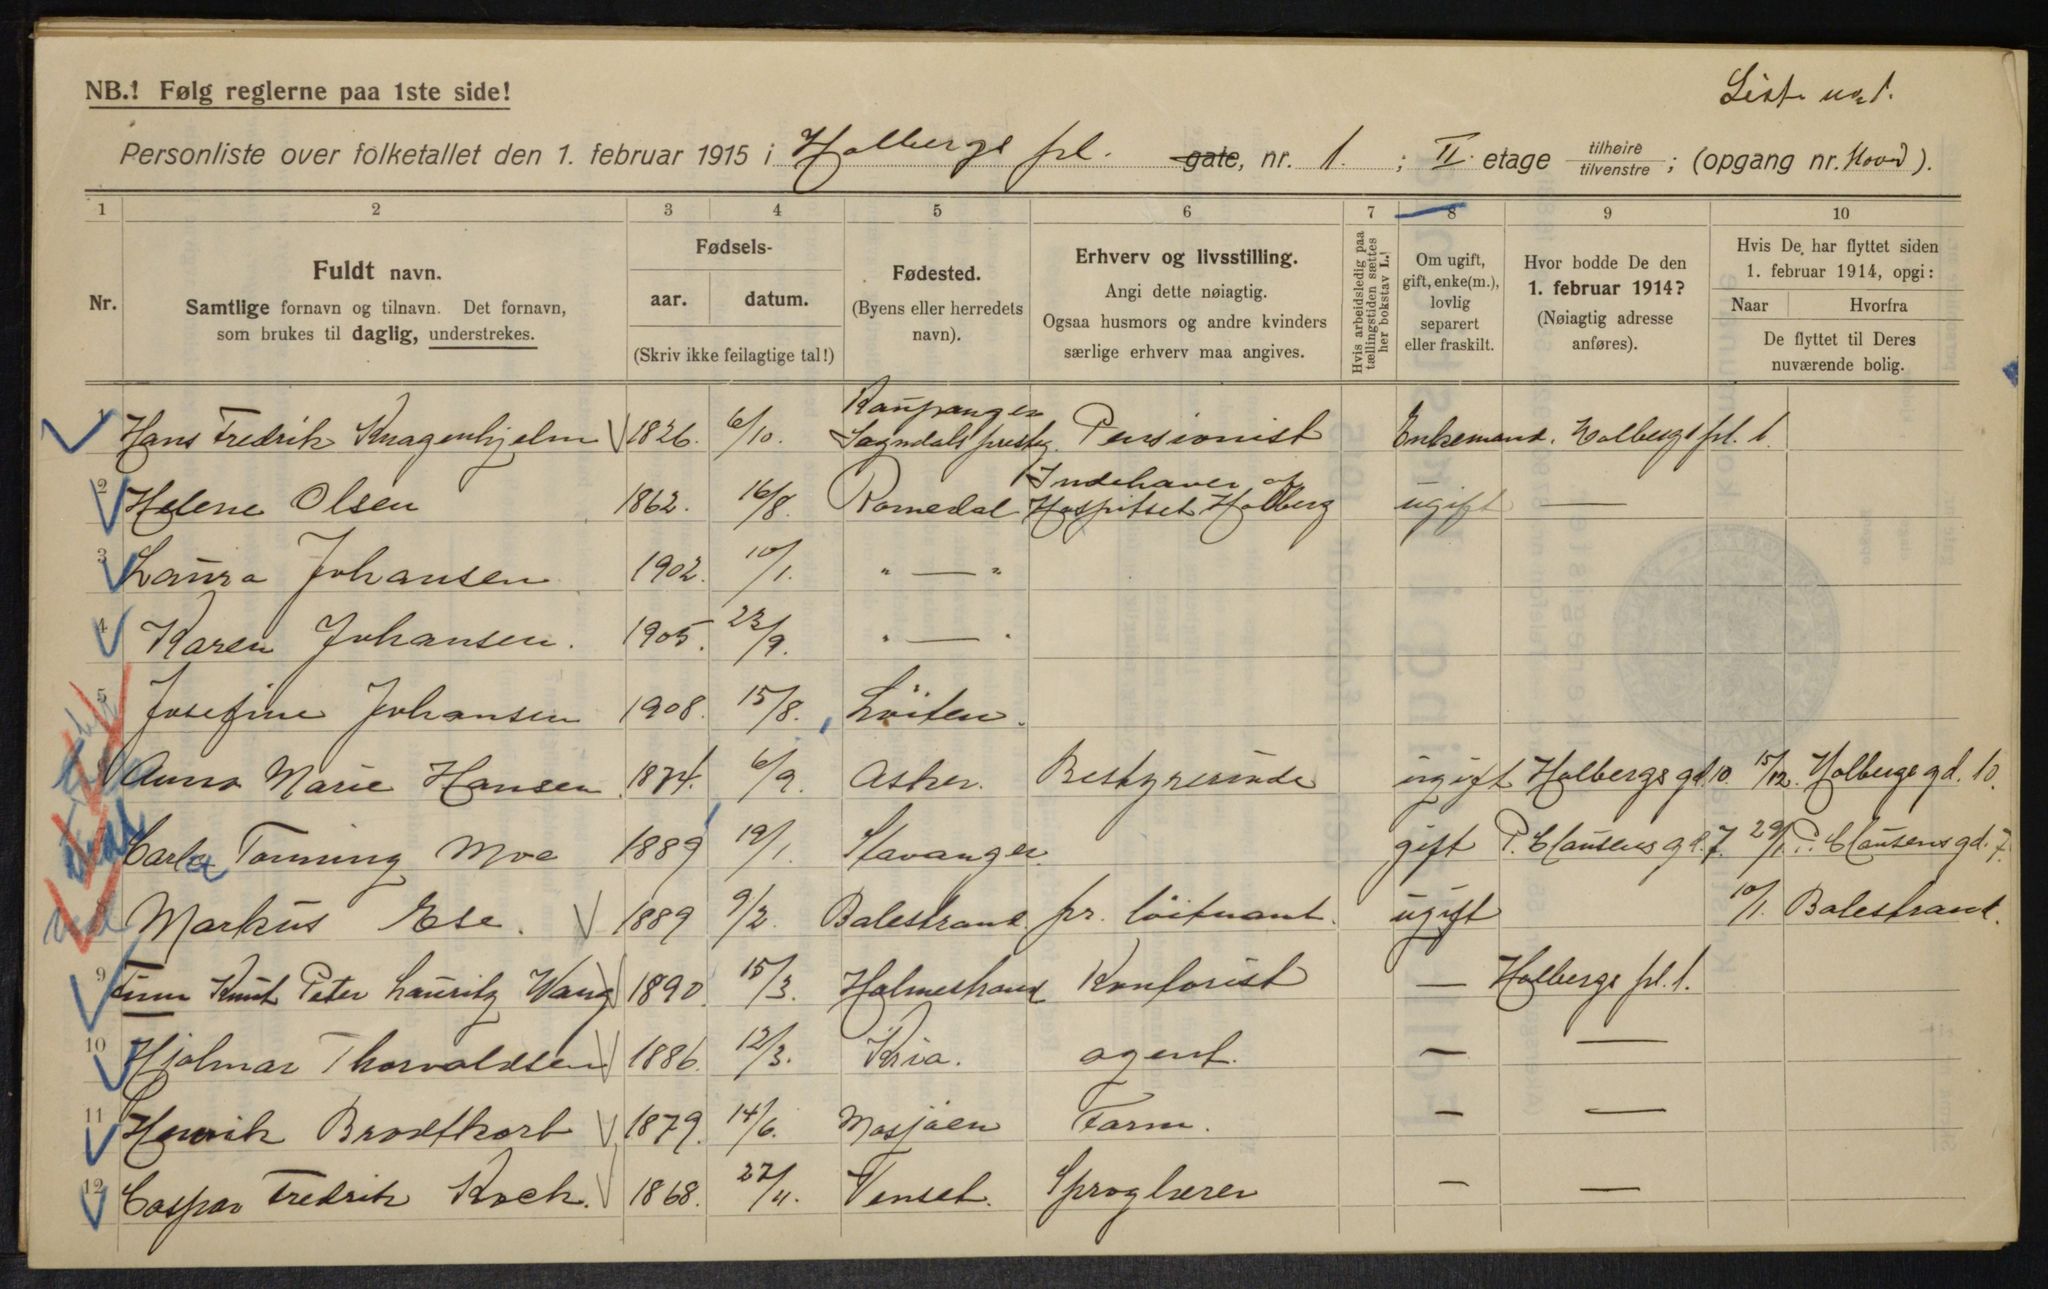 NB.! Følg reglerne paa 1ste side!
Liste no 1.
Personliste over folketallet den 1. februar 1915 i Holbergs pl. gate, nr. 1. ; II. etage tilhøire / tilvenstre ; (opgang nr. Hoved).
1 2 3 4 5 6 7 8 9 10
Nr.
Fuldt navn.
Samtlige fornavn og tilnavn. Det fornavn,
som brukes til daglig, understrekes.
Fødsels-
aar. datum.
(Skriv ikke feilagtige tal!)
Fødested.
(Byens eller herredets
navn).
Erhverv og livsstilling.
Angi dette nøiagtig.
Ogsaa husmors og andre kvinders
særlige erhverv maa angives.
Hvis arbeidsledig paa
tællingstiden sættes
her bokstav L.!
Om ugift,
gift, enke(m.),
lovlig
separert
eller fraskilt.
Hvor bodde De den
1. februar 1914?
(Nøiagtig adresse
anføres).
Hvis De har flyttet siden
1. februar 1914, opgi:
Naar Hvorfra
De flyttet til Deres
nuværende bolig.
1 Hans Fredrik Knagenhjelm 1826. 6/10. Kaupanger Sogndals prestg. Pensionist Enkemand. Holbergs pl. 1.
2 Helene Olsen 1862. 16/8. Romedal Indehaver af Hospitset Holberg ugift —
3 Laura Johansen 1902. 10/1. " — "
4 Karen Johansen. 1905. 23/9. " — "
5 Josefine Johansen 1908. 15/8. Löiten.
6 Anna Marie Hansen 1874. 6/9. Asker. Bestyrerinde ugift Holbergs gd. 10. 15/12. Holbergs gd. 10.
7 Carla Tonning Moe 1889 19/1. Stavanger. gift P. Clausens gd. 7. 29/1 P. Clausens gd. 7.
8 Markus Ese. 1889 9/2. Balestrand. pr. löitnant. ugift 10/1. Balestrand.
9 Finn Knut Peter Lauritz Wang 1890. 15/3. Holmestrand Kontorist — Holbergs pl. 1.
10 Hjalmar Thorvaldsen 1886. 12/3. Kria. agent. — —
11 Henrik Brodtkorb 1879. 14/6. Mosjöen Farm. — —
12 Caspar Fredrik Koch. 1868. 27/11. Tenset. Sproglærer — —